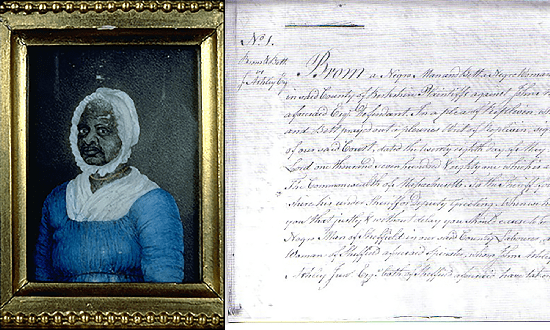 No. 1.
Brom & Bett
vs
J. Ashley Esq
Brom a Negro Man and Bett a Negro Woman
in said County of Berkshire Plaintiffs against John
aforesaid Esqr. Defendant. In a plea of Replevin,
and Bett prayed out a pluries Writ of Replevin,
of our said Court, dated the twenty eighth day of May
Lord one thousand seven hundred & eighty one which
The Commonwealth of Massachusetts To the Sheriff
Shire his under Sheriff or Deputy Greeting. Whereas
you that justly & without delay you should cause
Negro Man of Sheffield in our said County Labourer
Woman of Sheffield aforesaid Spinster, whom John Ashley
Ashley Junr. Esqr. both of Sheffield aforesaid have taken